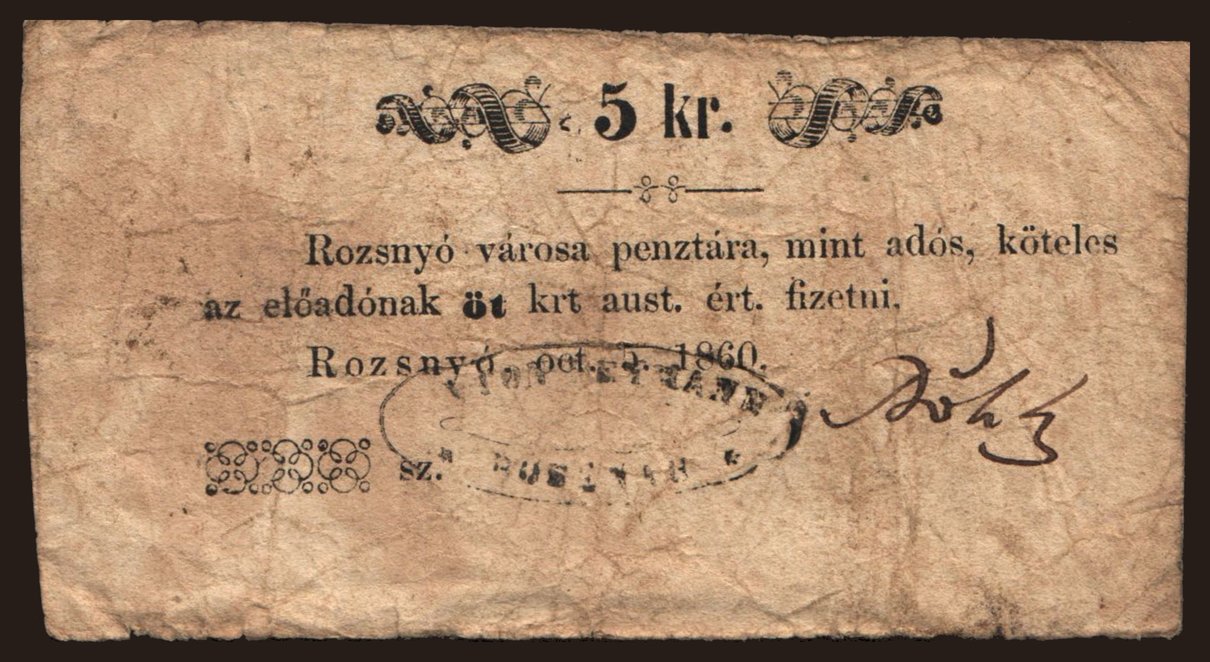 5 kr.
Rozsnyó városa penztára, mint adós, köteles
az előadónak öt krt aust. ért. fizetni.
Rozsnyó, oct. 5. 1860.
sz.